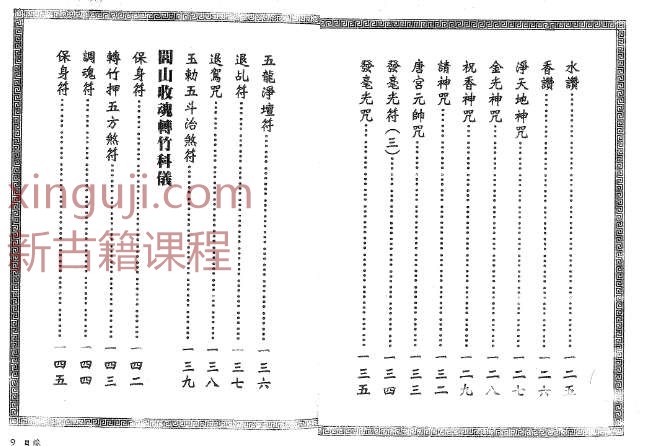 水讚……一二五
香讚……一二六
淨天地神咒……一二七
金光神咒……一二八
祝香神咒……一二九
請神咒……一三二
唐宮元帥咒……一三三
發毫光符(三)……一三四
發毫光咒……一三五
五龍淨壇符……一三六
退乩符……一三七
退駕咒……一三八
玉勅五斗治煞符……一三九
閭山收魂轉竹科儀
保身符……一四二
轉竹押五方煞符……一四三
調魂符……一四四
保身符……一四五
xinguji.com
新古籍课程
9 目錄